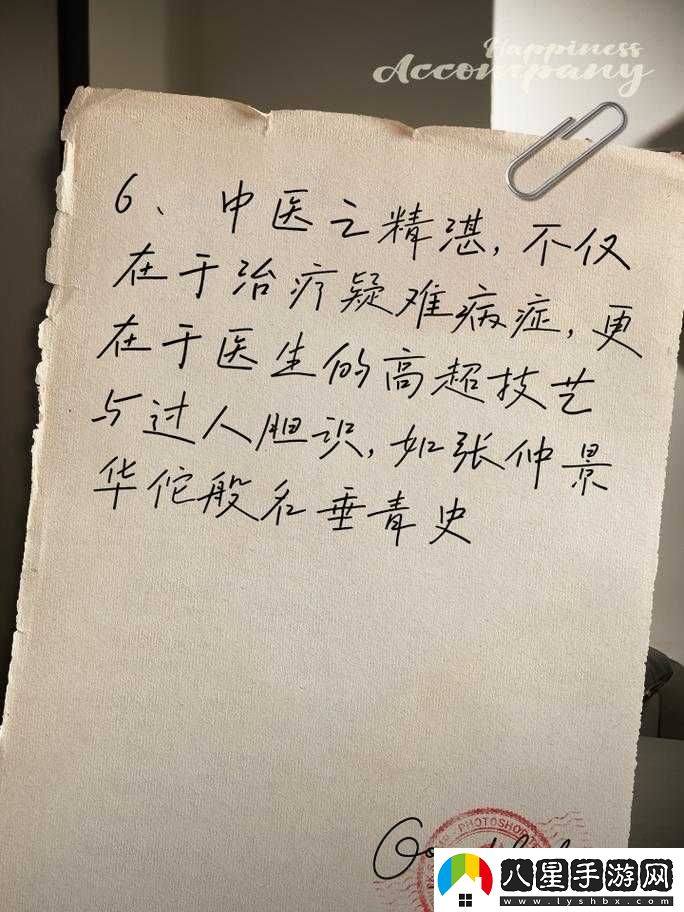 Happiness
Accompany
6、中医之精湛,不仅
在于治疗疑难病症,更
在于医生的高超技艺
与过人胆识,如张仲景
华佗般名垂青史
PHOTOSHOP
八星手游网
www.lyshbx.com